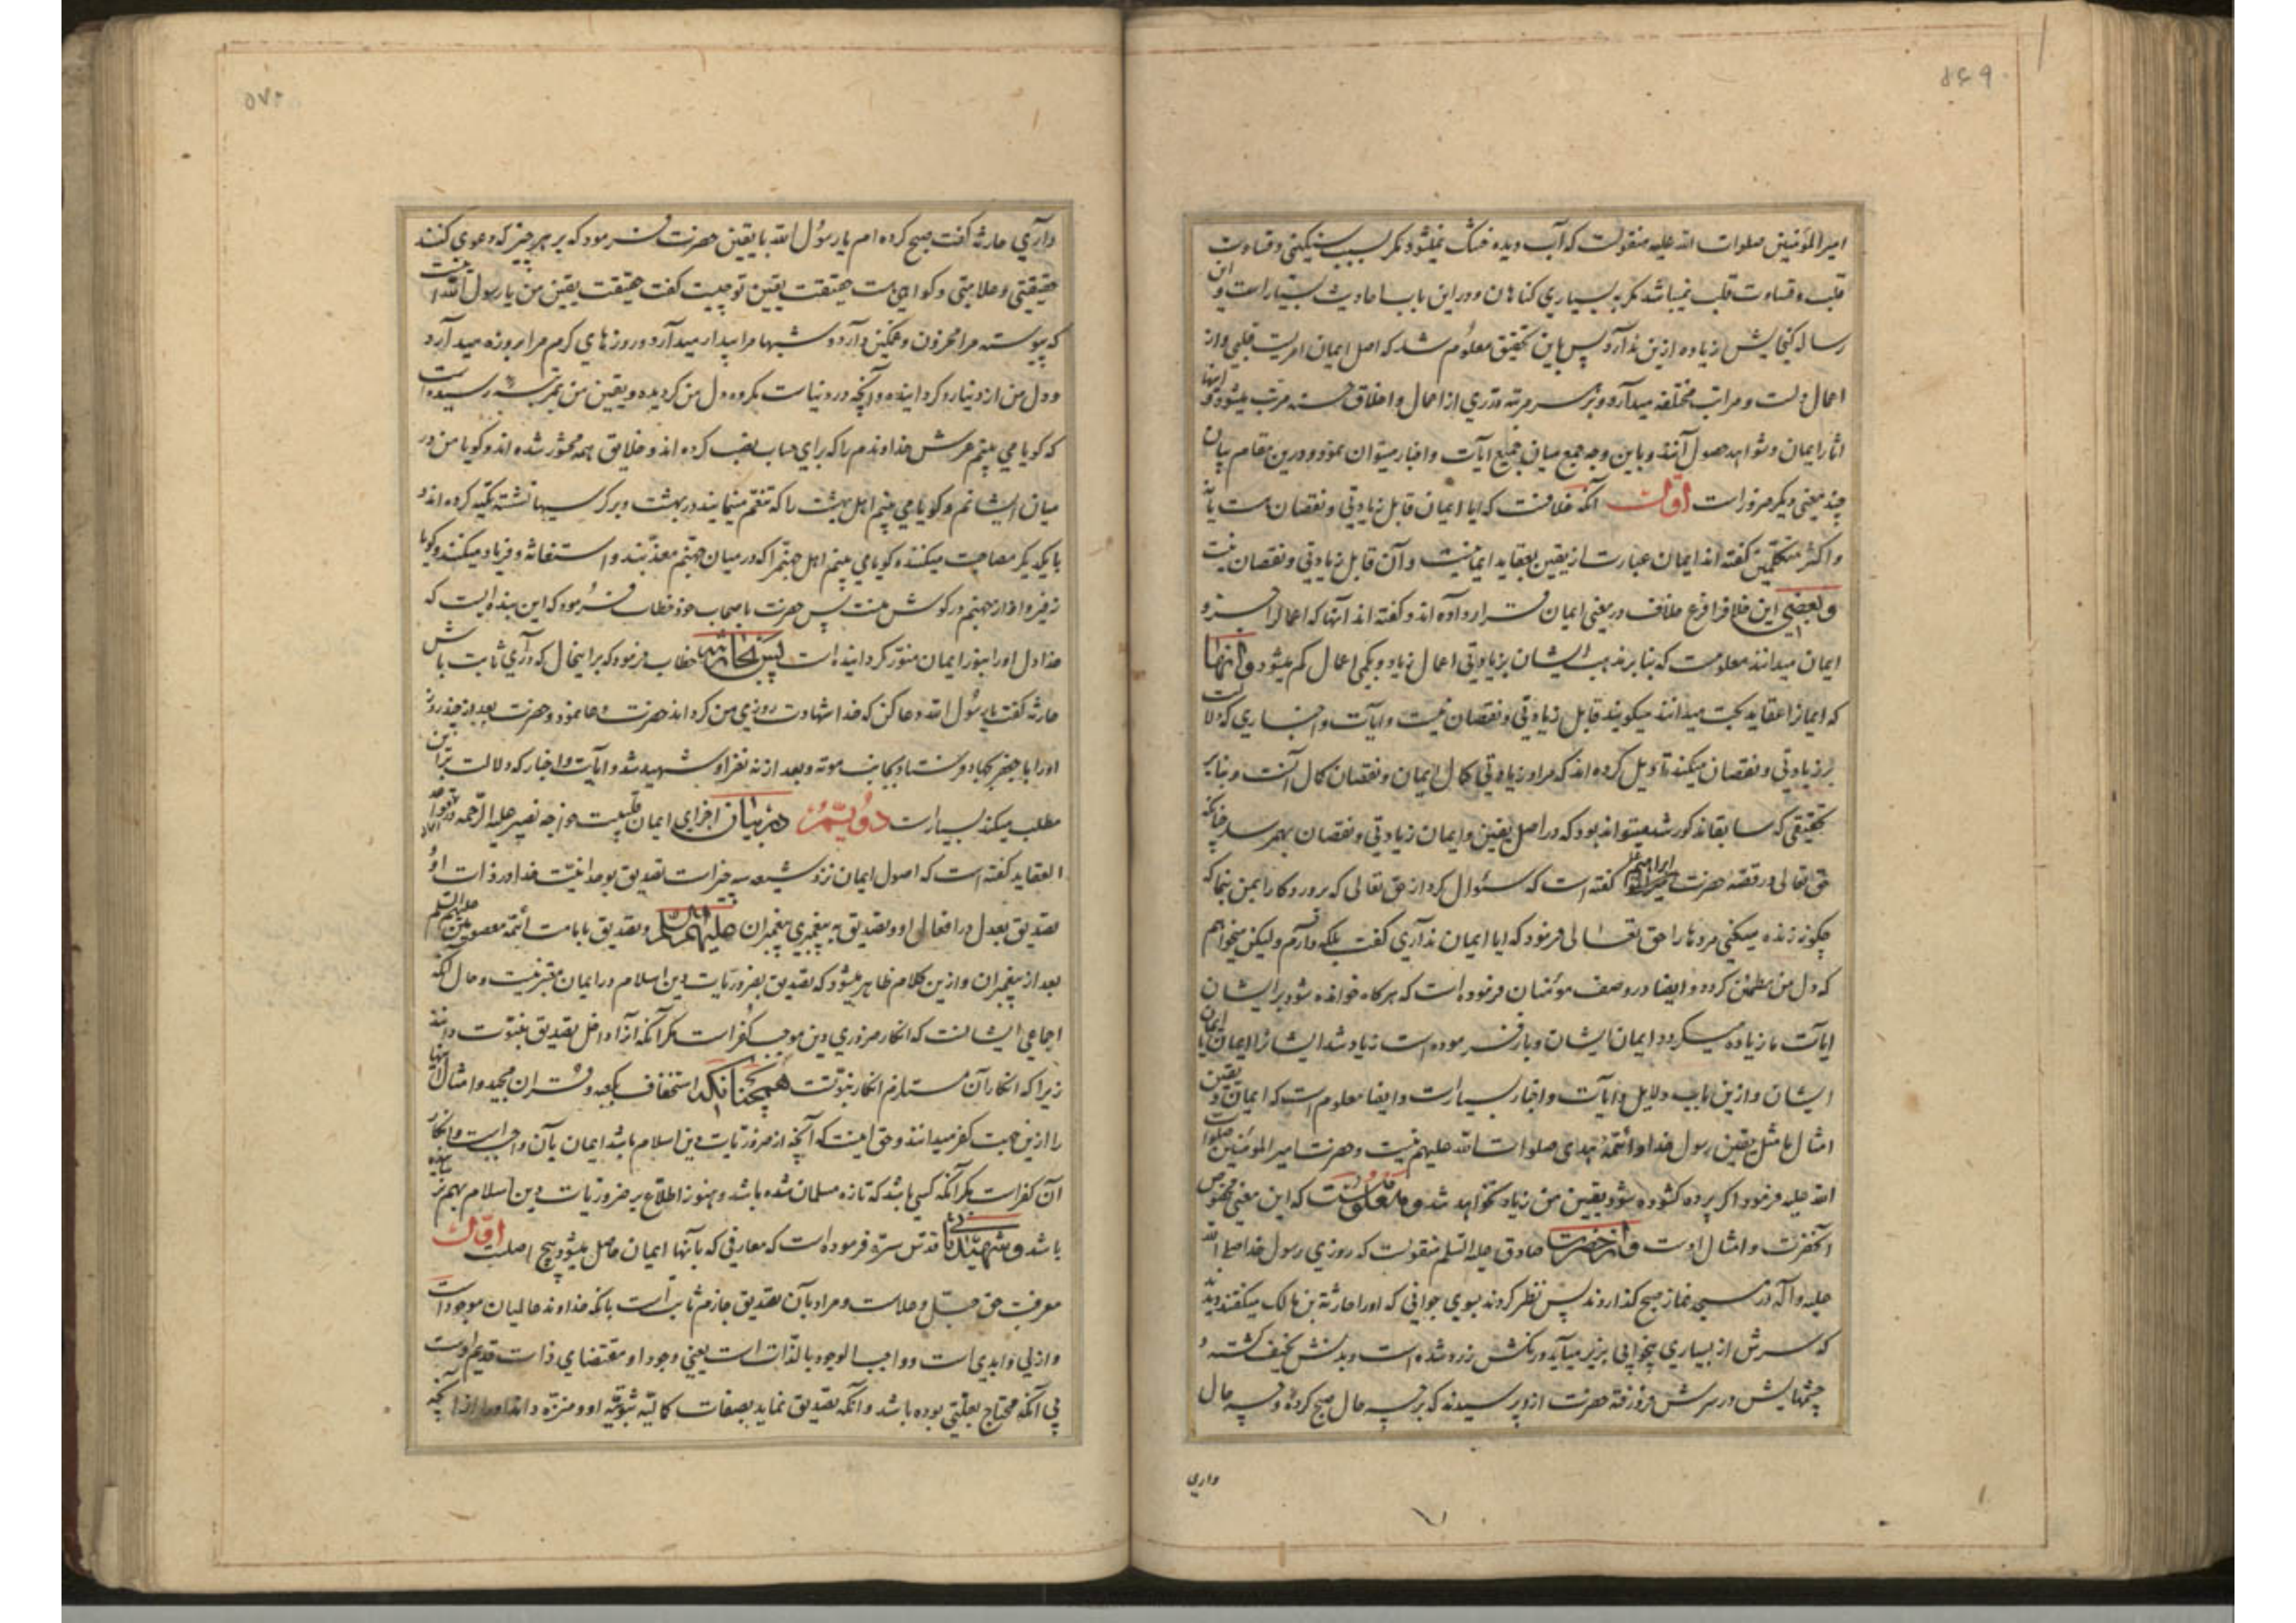 ۵۶۹
امیرالمؤمنین صلوات الله علیه منقولست که آب دیده خشک نمیشود مکر بسبب سنکینی و قساوت
قلب و قساوت قلب نمیباشد مکر به بسیاری کناهان و در این باب احادیث بسیار است و این
رساله کنجایش زیاده ازین ندارد پس باین تحقیق معلوم شد که اصل ایمان امریست قلبی و از
اعمال است و مراتب مختلفه میدارد و بر هر مرتبه قدری از اعمال و اخلاق حسنه مترتب میشود و اینها
اثار ایمان و شواهد حصول آنند و باین وجه جمع میان جمیع آیات و اخبار میتوان نمود و درین مقام بیان
چند معنی دیکر ضرور است اوّل آنکه خلافست که ایا ایمان قابل زیادتی و نقصان هست یا نه
و اکثر متکلمین کفته اند ایمان عبارت از یقین بعقاید ایمانیست و آن قابل زیادتی و نقصان نیست
و بعضی این خلاف را فرع خلاف در معنی ایمان قرار داده اند و کفته اند آنها که اعمال را جزو
ایمان میدانند معلومست که بنا بر مذهب ایشان بزیادتی اعمال زیاد و بکمی اعمال کم میشود و آنها
که ایمانرا عقاید بحت میدانند میکویند قابل زیادتی و نقصان نیست و ایات و اخباری که دلالت
بر زیادتی و نقصان میکند تاویل کرده اند که مراد زیادتی کمال ایمان و نقصان کمال آنست و بنا بر
تحقیقی که سابقا مذکور شد میتواند بود که در اصل یقین و ایمان زیادتی و نقصان بهم رسد چنانکه
حق تعالی در قصه حضرت ابراهیم کفته است که سئوال کرد از حق تعالی که پروردکارا بمن بنما که
چکونه زنده میکنی مردها را حق تعالی فرمود که ایا ایمان نداری کفت بلکه دارم ولیکن میخواهم
که دل من مطمئن کردد و ایضا در وصف مؤمنان فرموده است که هرکاه خوانده شود بر ایشان
ایات ما زیاده میکردد ایمان ایشان و باز فرموده است زیاد شد ایشانرا ایمان با ایمان
ایشان و ازین باب دلایل و آیات و اخبار بسیار است و ایضا معلوم است که ایمان و یقین
امثال ما مثل یقین رسول خدا و ائمّهٔ هدی صلوات الله علیهم نیست و حضرت امیرالمؤمنین صلوات
الله علیه فرمود اکر پرده کشوده شود یقین من زیاد نخواهد شد و معلومست که این معنی مخصوص
آنحضرت و امثال اوست و از حضرت صادق علیه السلم منقولست که روزی رسول خدا صلی الله
علیه و آله در مسجد نماز صبح کذاردند پس نظر کردند بسوی جوانی که او را حارثة بن مالک میکفتند دید
که سرش از بسیاری بیخوابی بزیر میآید و رنکش زرد شده است و بدنش نحیف کشته و
چشمهایش در سرش فرو رفته حضرت ازو پرسیدند که بر چه حال صبح کردهٔ و چه حال
داری
۵۷۰
داری حارثه کفت صبح کرده ام یا رسول الله با یقین حضرت فرمود که بر هر چیز که دعوی کنند
حقیقتی و علامتی و کواهی هست حقیقت یقین تو چیست کفت حقیقت یقین من یا رسول الله اینست
که پیوسته مرا محزون و غمکین دارد و شبها مرا بیدار میدارد و روزهای کرم مرا بروزه میدارد
و دل من از دنیا رو کردانیده و آنچه در دنیاست مکروه دل من کردیده و یقین من بمرتبه رسیده است
که کویا می بینم عرش خداوندم را که برای حساب نصب کرده اند و خلایق همه محشور شده اند و کویا من در
میان ایشانم و کویا می بینم اهل بهشت را که تنعّم مینمایند در بهشت و بر کرسیها نشسته تکیه کرده اند
با یکدیکر مصاحبت میکنند و کویا می بینم اهل جهنّم را که در میان جهنّم معذّبند و استغاثه و فریاد میکنند و کویا
زفیر و اواز جهنم در کوش منست پس حضرت باصحاب خود خطاب فرمود که این بنده ایست که
خدا دل او را بنور ایمان منوّر کردانیده است پس بحارثه خطاب فرمود که بر اینحال که داری ثابت باش
حارثه کفت یا رسول الله دعا کن که خدا شهادت روزی من کرداند حضرت دعا نمود و حضرت بعد از چند روز
او را با جعفر بجهاد فرستاد بجانب موته و بعد از نه نفر او شهید شد و ایات و اخبار که دلالت بر این
مطلب میکند بسیار است دویّم در بیان اجزای ایمان قلبیست خواجه نصیر علیه الرحمه در قواعد
العقاید کفته است که اصول ایمان نزد شیعه سه چیز است تصدیق بوحدانیّت خدا در ذات او و
تصدیق بعدل در افعال او و تصدیق به پیغمبری پیغمبران علیهم السلم و تصدیق بامامت ائمّه معصومین علیهم السلم
بعد از پیغمبران و ازین کلام ظاهر میشود که تصدیق بضروریّات دین اسلام در ایمان معتبر نیست و حال آنکه
اجماعی ایشانست که انکار ضروری دین موجب کفر است مکر آنکه آنرا داخل تصدیق بنبوّت دانند
زیرا که انکار آن مستلزم انکار نبوّتست همچنانکه استخفاف بکعبه و قران مجید و امثال اینها
را ازین جهت کفر میدانند و حق اینست که آنچه از ضروریّات دین اسلام باشد ایمان بآن واجب است و انکار
آن کفر است مکر آنکه کسی باشد که تازه مسلمان شده باشد و هنوز اطلاع بر ضروریات دین اسلام بهم نرسانیده
باشد و شهید ثانی قدّس سرّه فرموده است که معارفی که بآنها ایمان حاصل میشود پنج اصلست اوّل
معرفت حق جلّ و علاست و مراد بآن تصدیق جازم ثابت است بانکه خداوند عالمیان موجود است
و ازلی و ابدی است و واجب الوجود بالذّات است یعنی وجود او مقتضای ذات قدیم اوست
بی آنکه محتاج بعلّتی بوده باشد و آنکه تصدیق نماید بصفات کمالیّه ثبوتیّه او و منزّه داند او را از آنچه